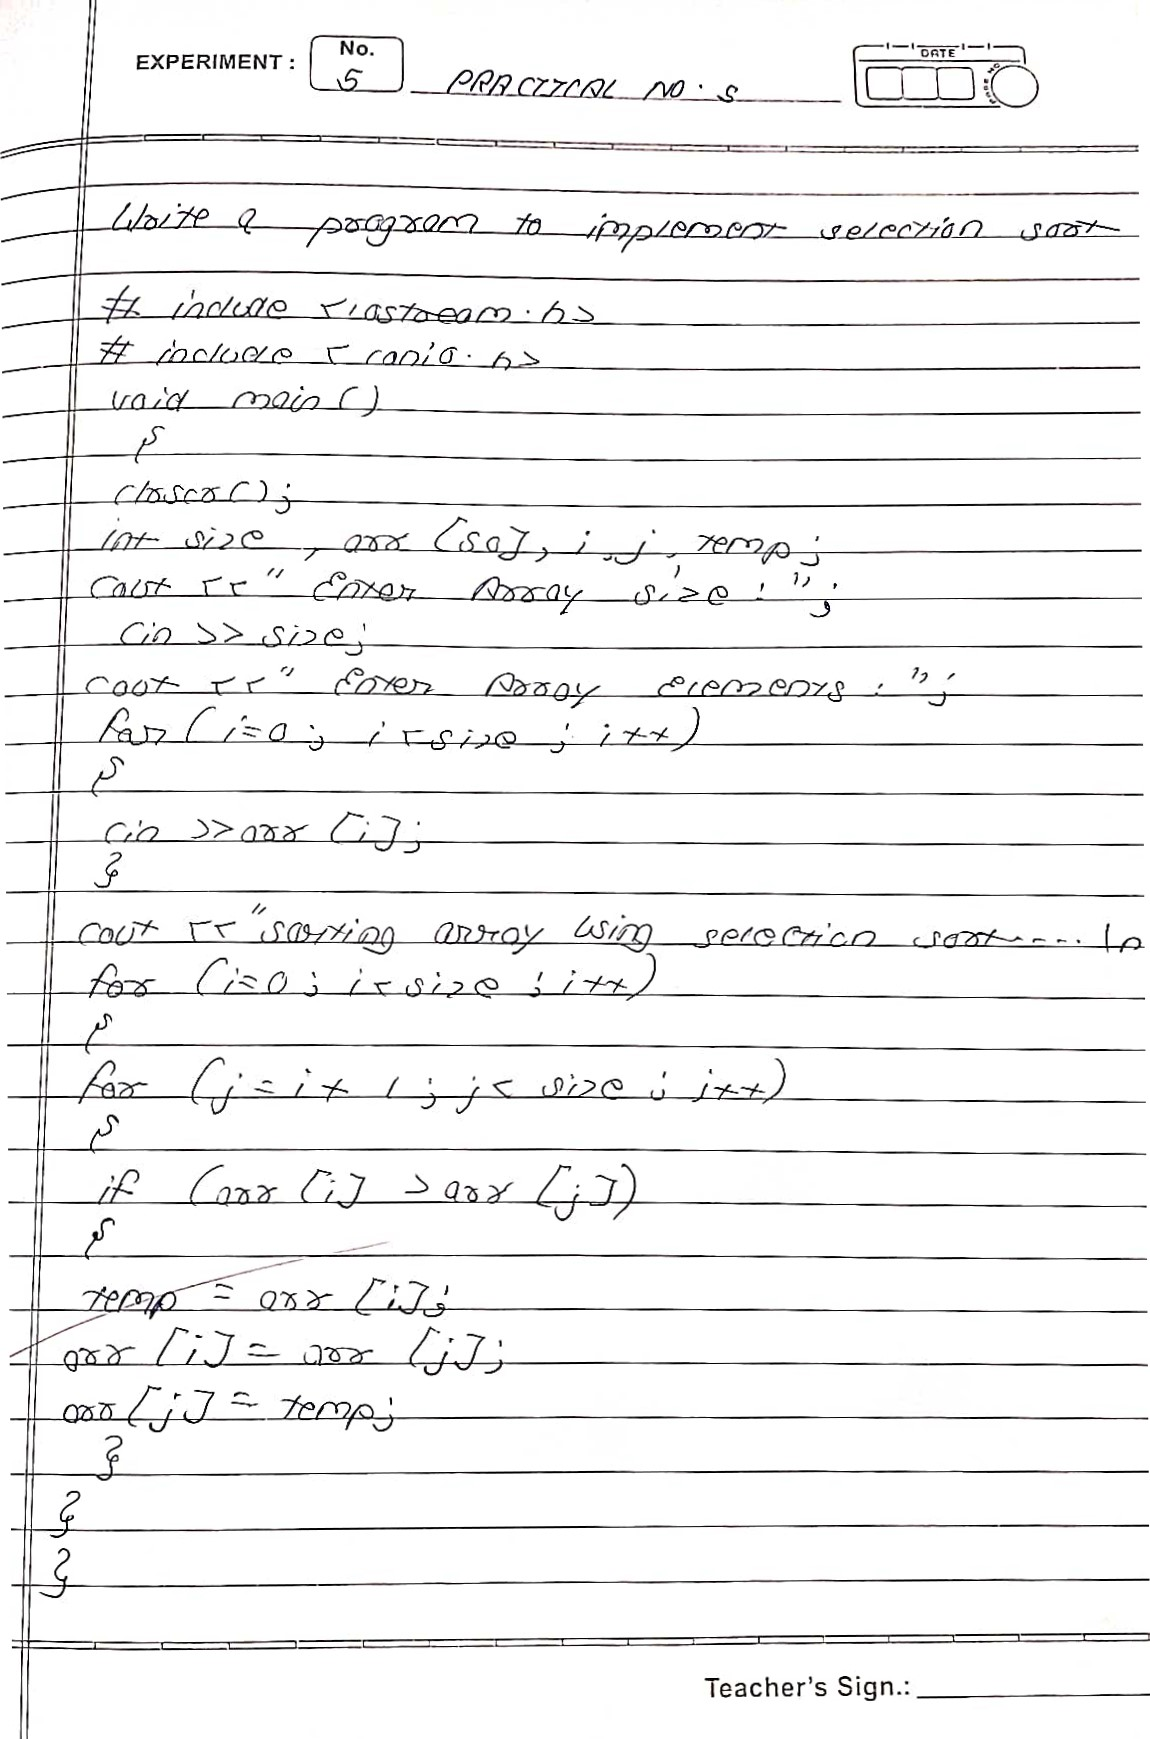 EXPERIMENT : No. 5 PRACTICAL NO : 5 DATE PAGE NO.
Write a program to implement selection sort
# include <iostream.h>
# include <conio.h>
void main ()
{
clrscr();
int size , arr [50], i, j, temp;
cout << " Enter Array size : ";
cin >> size;
cout << " Enter Array elements : ";
for (i=0; i<size ; i++)
{
cin >> arr [i];
}
cout << "sorting array using selection sort.... \n
for (i=0; i< size ; i++)
{
for (j = i + 1; j< size ; j++)
{
if (arr [i] > arr [j])
{
temp = arr [i];
arr [i] = arr [j];
arr [j] = temp;
}
}
}
Teacher's Sign.: